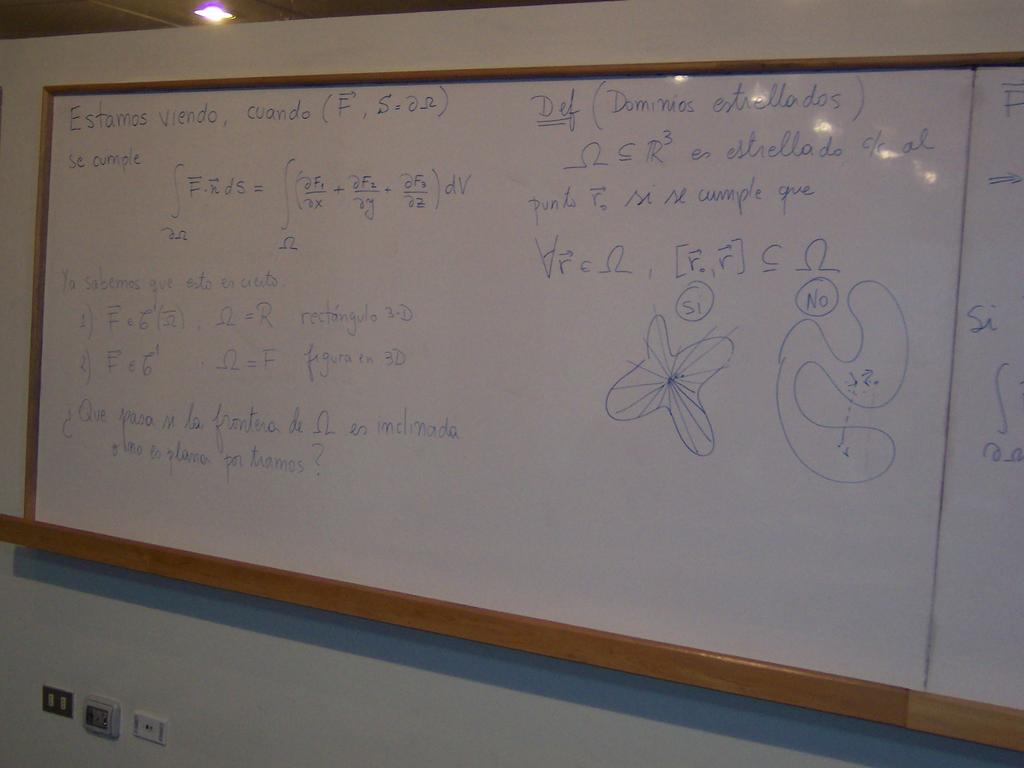 Estamos viendo, cuando (F⃗, S = ∂Ω)
se cumple
∫_{∂Ω} F⃗·n⃗ dS = ∫_Ω (∂F₁/∂x + ∂F₂/∂y + ∂F₃/∂z) dV
Ya sabemos que esto es cierto:
1) F⃗ ∈ C¹(Ω̄), Ω = R rectángulo 3-D
2) F⃗ ∈ C¹ . Ω = F figura en 3D
¿Que pasa si la frontera de Ω es inclinada
o no es plana por tramos?
Def (Dominios estrellados)
Ω ⊆ ℝ³ es estrellado c/r al
punto r⃗₀ si se cumple que
∀r⃗ ∈ Ω, [r⃗₀, r⃗] ⊆ Ω
Si
No
r⃗₀
F⃗
⇒
Si
∫